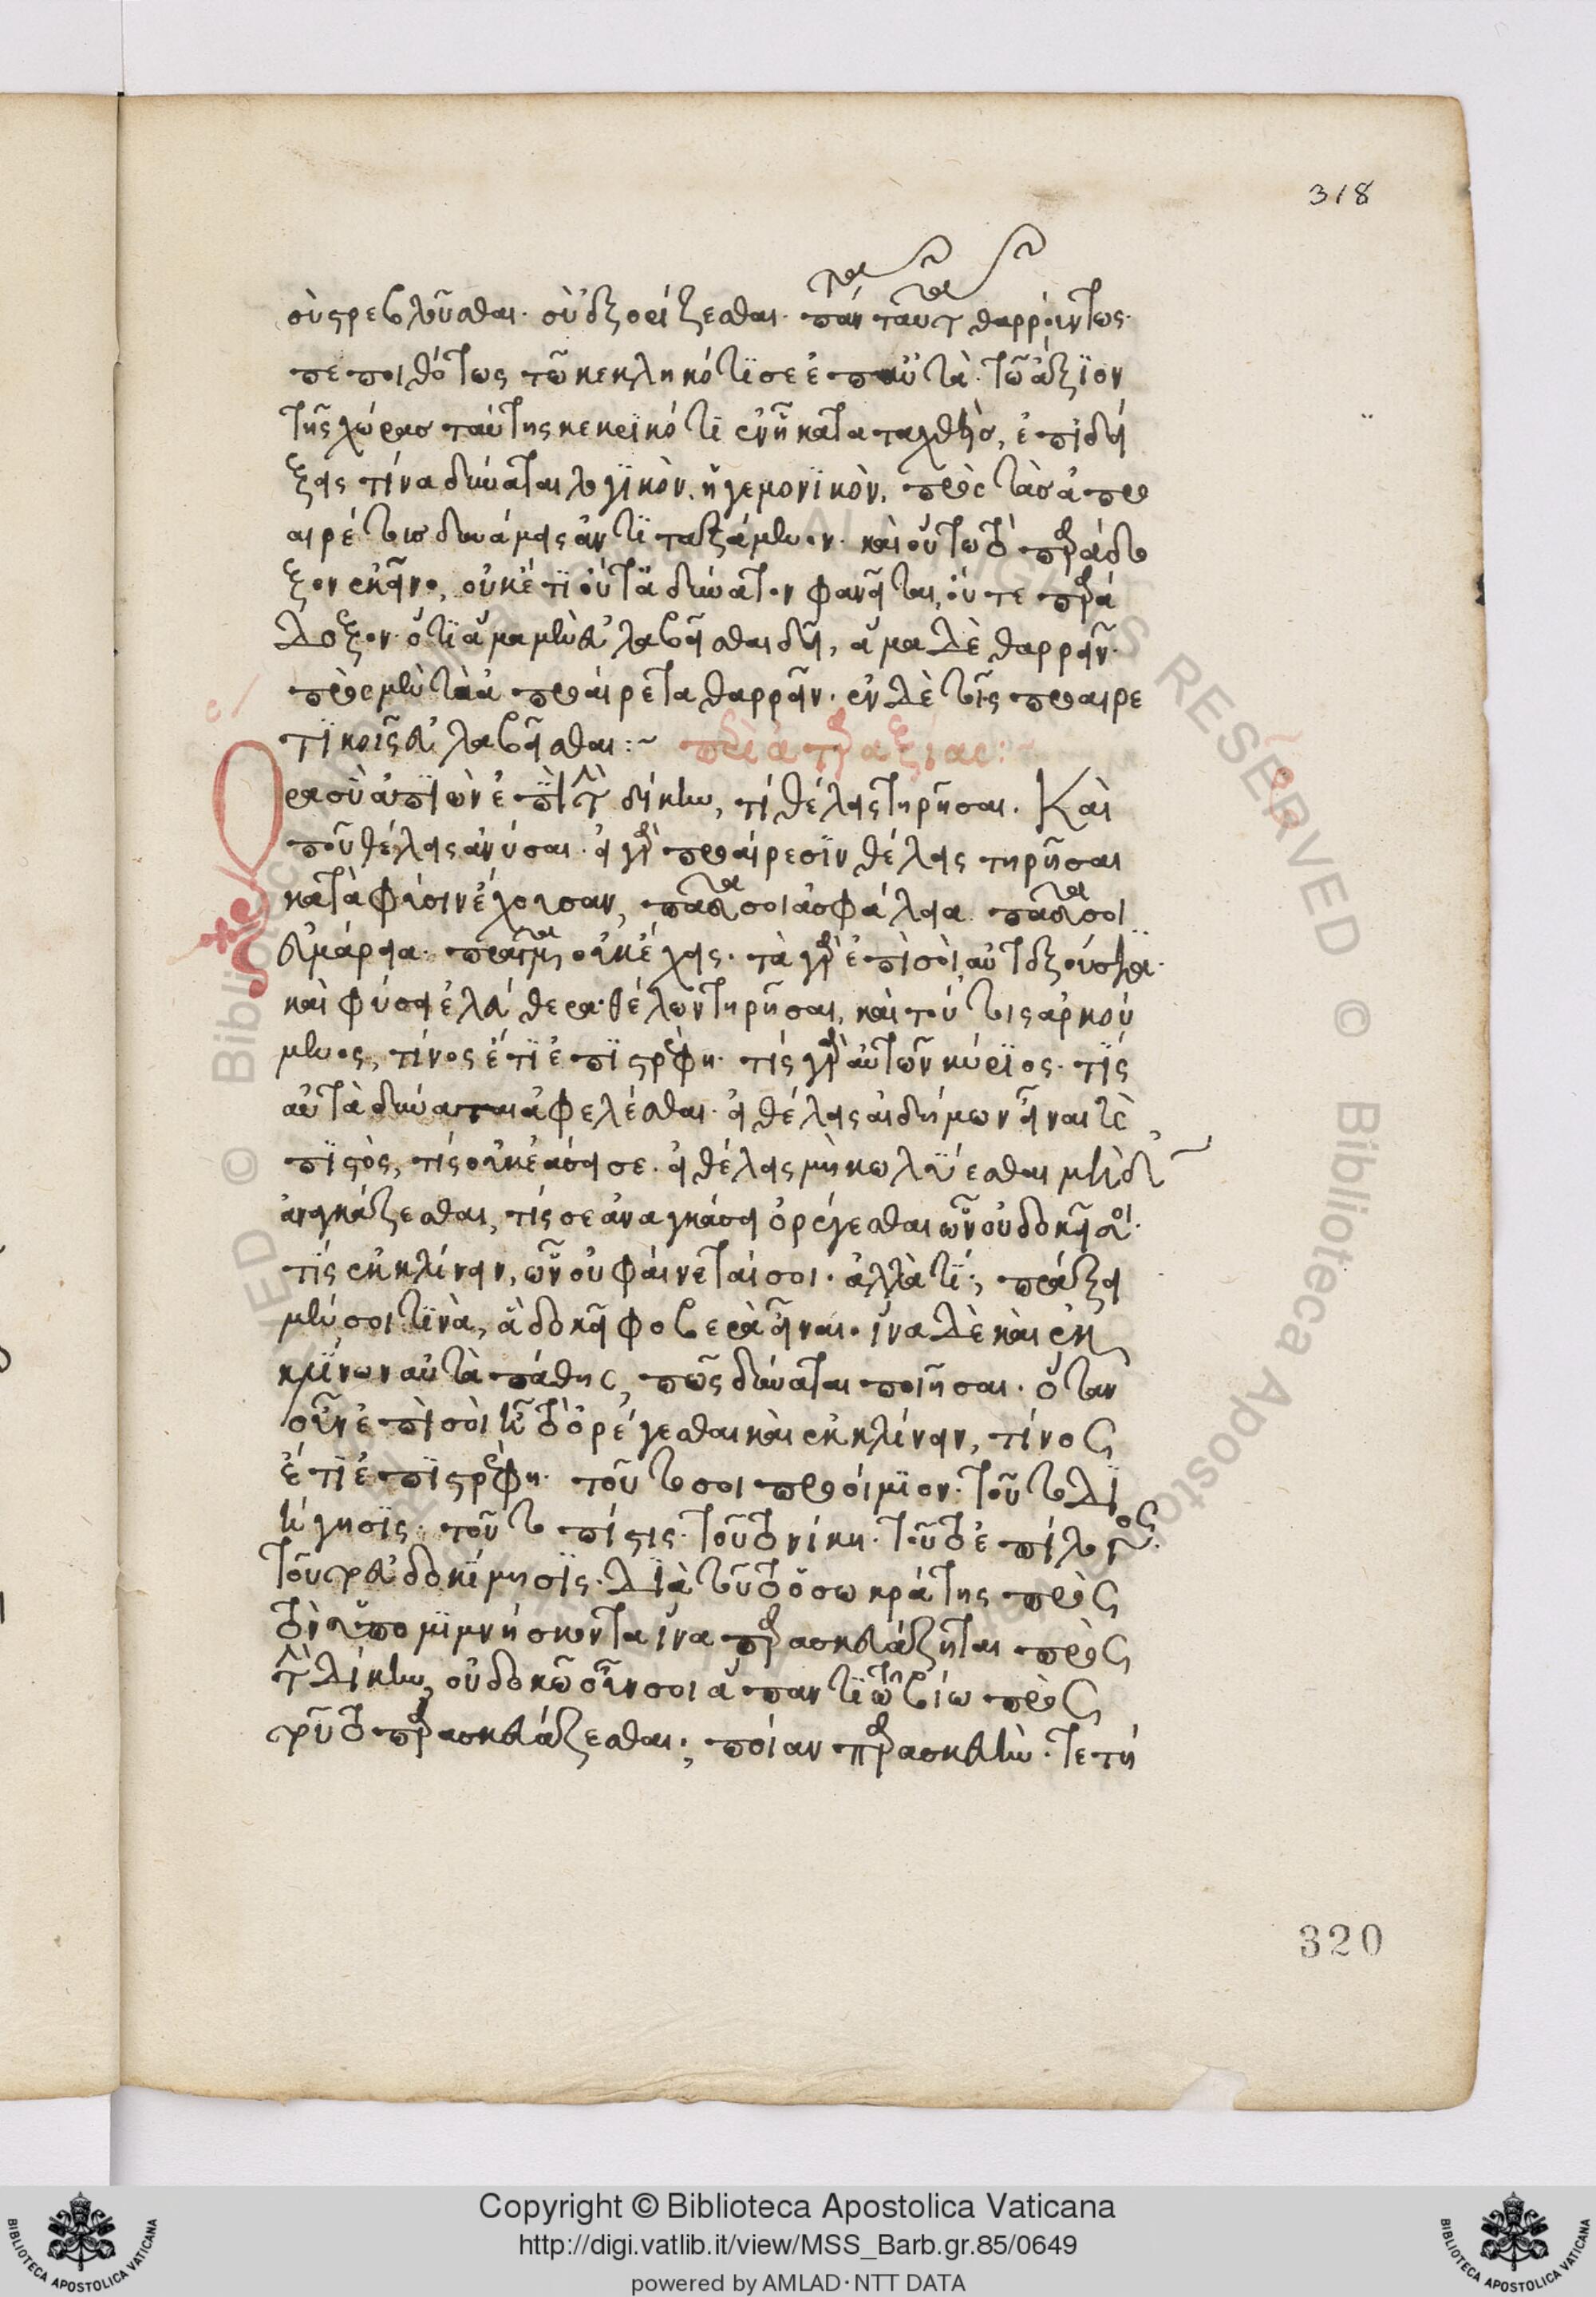 318
οὐ στρεβλοῦσθαι. οὐκ ἐξορίζεσθαι. πάντα ταῦτα θαρρούντως.
πεποιθότως τῶ κεκληκότι σε ἐπ' αὐτὰ. τῶ ἄξιον
τῆς χώρας ταύτης κεκρικότι ἐν ἧ καταταχθεὶς, ἐπιδεί
ξεις τίνα δύναται λογικὸν ἡγεμονικὸν, πρὸς τὰς ἀπρο
αιρέτους δυνάμεις ἀντιταξάμενον. καὶ οὕτω τὸ παράδο
ξον ἐκεῖνο, οὐκέτι οὔτ' ἀδύνατον φανεῖται, οὔτε παρά
δοξον. ὅτι ἅμα μὲν εὐλαβεῖσθαι δεῖ, ἅμα δὲ θαρρεῖν.
πρὸς μὲν τὰ ἀπροαίρετα θαρρεῖν. ἐν δὲ τοῖς προαιρε
τικοῖς εὐλαβεῖσθαι:~ περὶ ἀταραξίας:~
Ὅρα σὺ ἀπιὼν ἐπὶ τὴν δίκην, τί θέλεις τηρῆσαι. Καὶ
ποῦ θέλεις ἀνύσαι. εἰ γὰρ προαίρεσιν θέλεις τηρῆσαι
κατὰ φύσιν ἔχουσαν, πᾶσά σοι ἀσφάλεια. πᾶσά σοι
εὐμάρεια. πρᾶγμα οὐκ ἔχεις. τὰ γὰρ ἐπὶ σοὶ αὐτεξούσια.
καὶ φύσει ἐλεύθερα θέλων τηρῆσαι, καὶ τούτοις ἀρκού
μενος, τίνος ἔτι ἐπιστρέφη. τίς γὰρ αὐτῶν κύριος. τίς
αὐτὰ δύναται ἀφελέσθαι. εἰ θέλεις αἰδήμων εἶναι καὶ
πιστὸς, τίς οὐκ ἐάσει σε. εἰ θέλεις μὴ κωλύεσθαι μηδ'
ἀναγκάζεσθαι, τίς σε ἀναγκάσει ὀρέγεσθαι ὧν οὐ δοκεῖ σοι.
τίς ἐκκλίνειν, ὧν οὐ φαίνεταί σοι. ἀλλὰ τί; πράξει
μέν σοι τινὰ, ἃ δοκεῖ φοβερὰ εἶναι. ἵνα δὲ καὶ ἐκ
κλίνων αὐτὰ πάθης, πῶς δύναται ποιῆσαι. ὅταν
οὖν ἐπὶ σοὶ ἦ τὸ ὀρέγεσθαι καὶ ἐκκλίνειν, τίνος
ἔτι ἐπιστρέφη. τοῦτο σοι προοίμιον. τοῦτο δι
ήγησις. τοῦτο πίστις. τοῦτο νίκη. τοῦτο ἐπίλογος.
τοῦτο εὐδοκίμησις. Διὰ τοῦτο ὁ σωκράτης πρὸς
τὸν ὑπομιμνήσκοντα ἵνα παρασκευάζηται πρὸς
τὴν δίκην, οὐ δοκῶ οὖν σοι ἅπαντι τῶ βίω πρὸς
τοῦτο παρασκευάζεσθαι; ποίαν παρασκευὴν. τετή
320
Copyright © Biblioteca Apostolica Vaticana
http://digi.vatlib.it/view/MSS_Barb.gr.85/0649
powered by AMLAD·NTT DATA